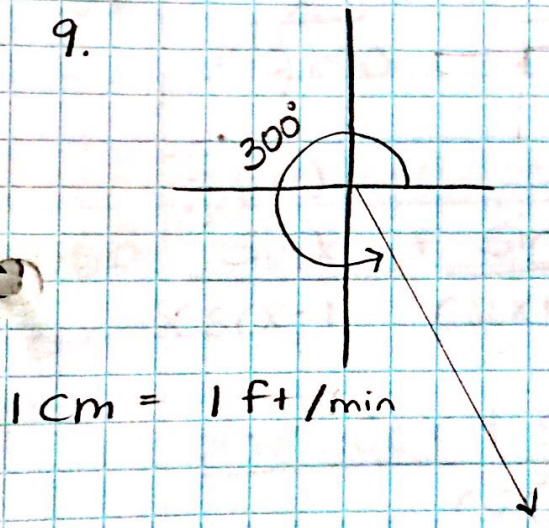 9.
300°
1 cm = 1 ft/min